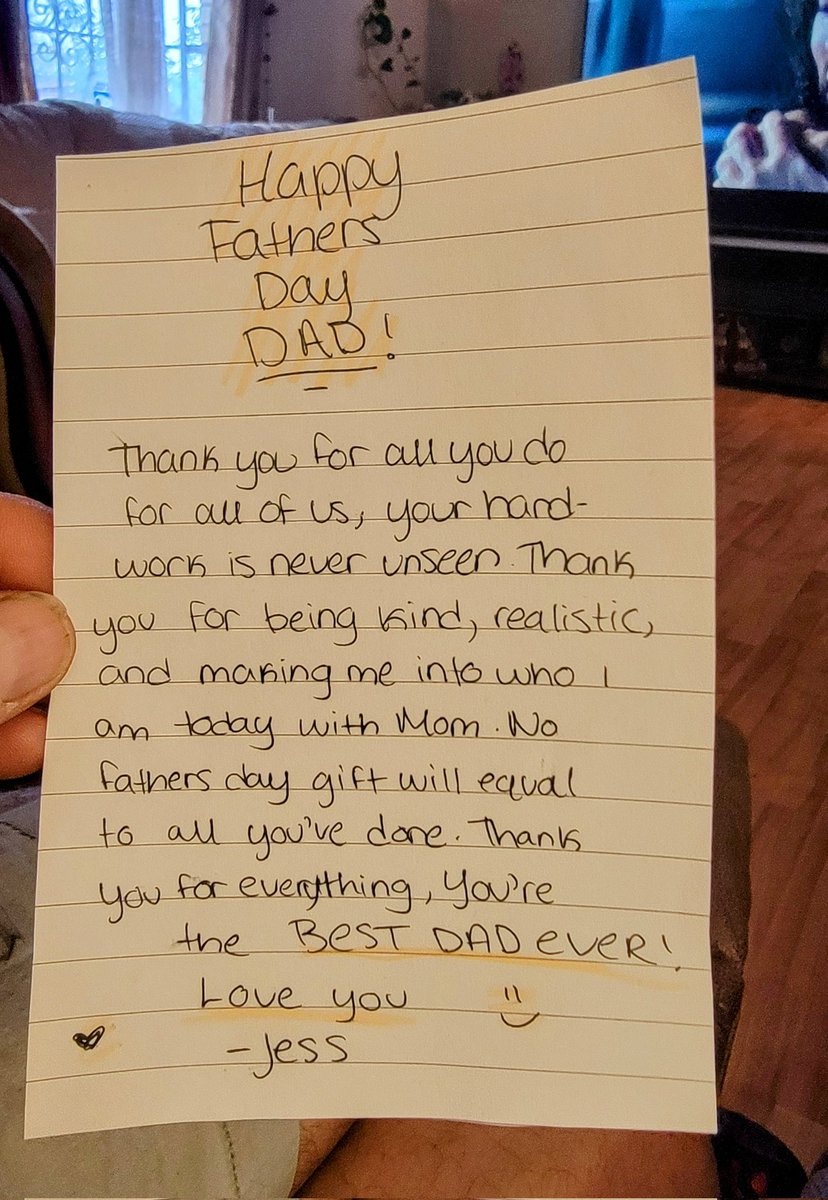 Happy
Fathers
Day
DAD!
Thank you for all you do
for all of us, your hard-
work is never unseen. Thank
you for being kind, realistic,
and making me into who I
am today with Mom. No
fathers day gift will equal
to all you've done. Thank
you for everything, You're
the BEST DAD EVER!
Love you
-Jess